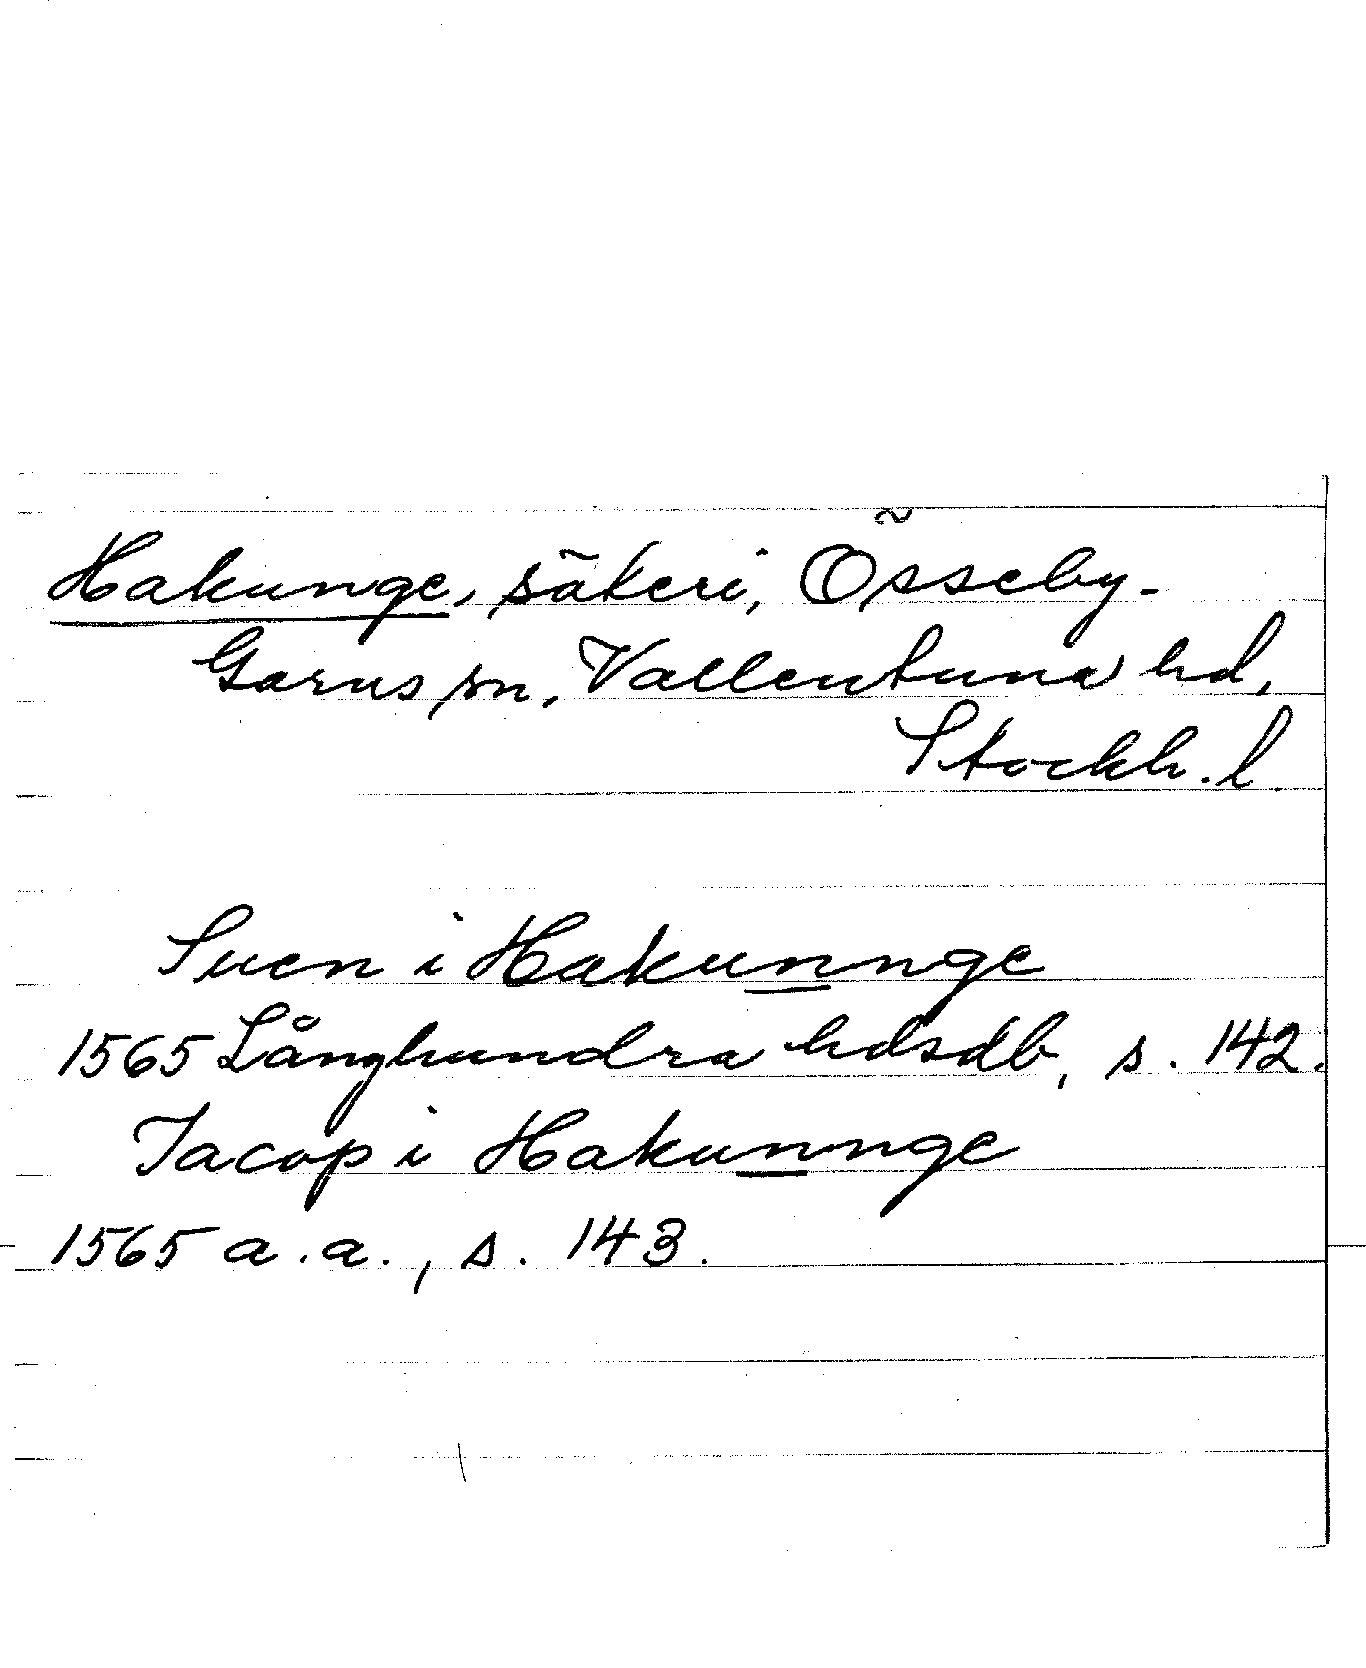 Hakunge, säteri, Össeby-
Garns sn, Vallentuna hd,
Stockh. l.
Suen i Hakunnge
1565 Långhundra hdsdb, s. 142.
Jacop i Hakunnge
1565 a.a., s. 143.